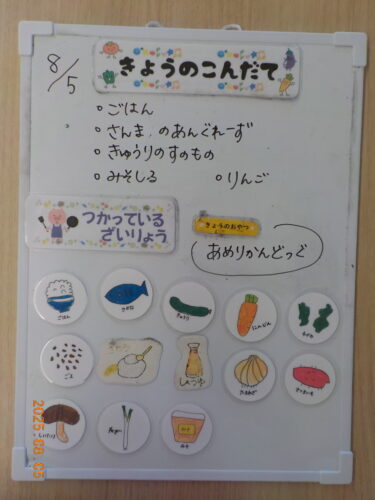 8/5
きょうのこんだて
○ごはん
○さんまのあんぐれーず
○きゅうりのすのもの
○みそしる ○りんご
つかっている
ざいりょう
きょうのおやつ
あめりかんどっぐ
ごはん
さかな
きゅうり
にんじん
わかめ
ごま
さとう
しょうゆ
たまねぎ
さつまいも
しいたけ
ねぎ
みそ
2025.08.05